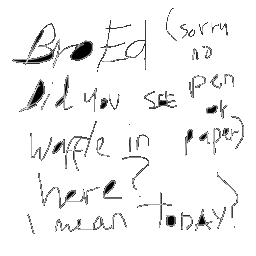 Bro Ed
(sorry
no
pen
or
paper)
Did you see
Wade in
here?
I mean today?